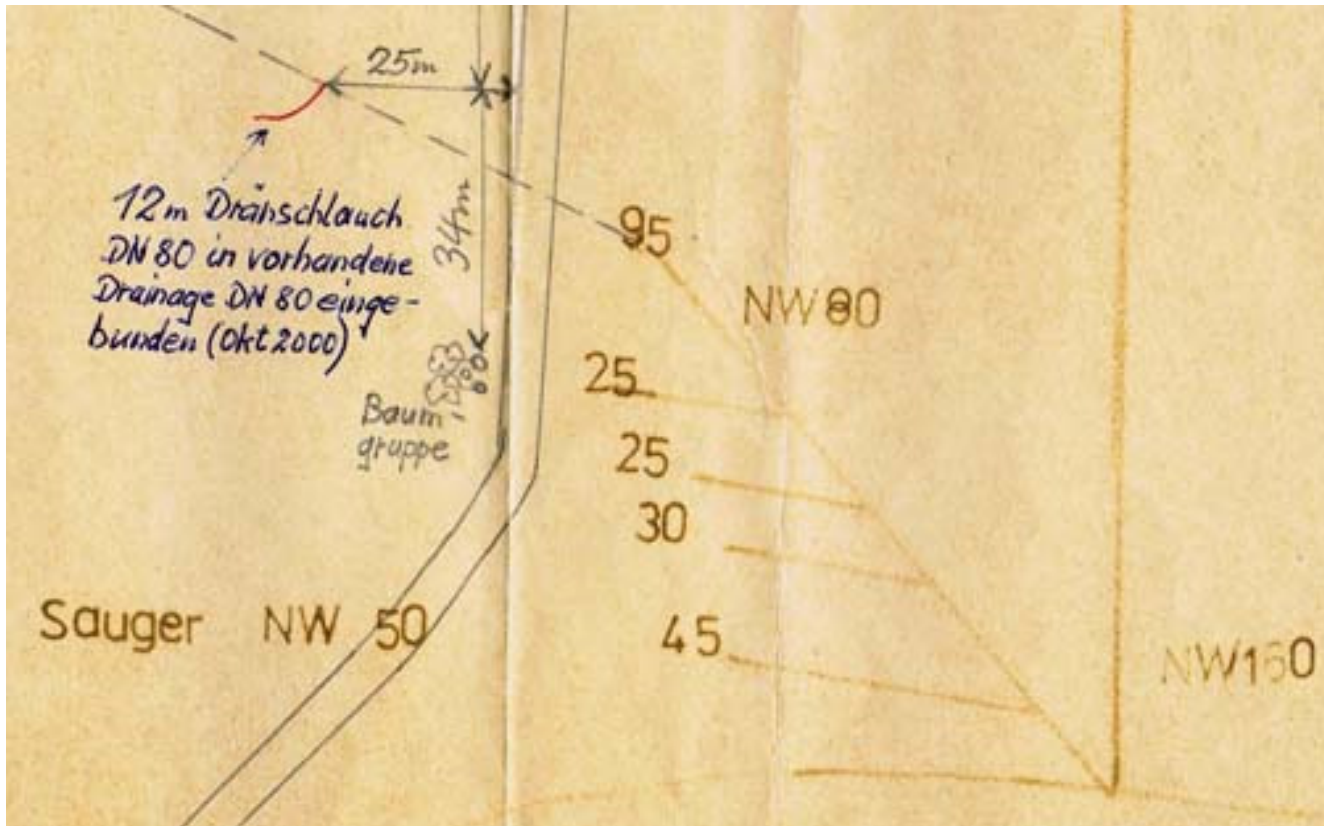 25m
12m Dränschlauch
DN 80 in vorhandene
Drainage DN 80 einge-
bunden (Okt 2000)
34m
Baum
gruppe
95
NW 80
25
25
30
45
Sauger NW 50
NW160